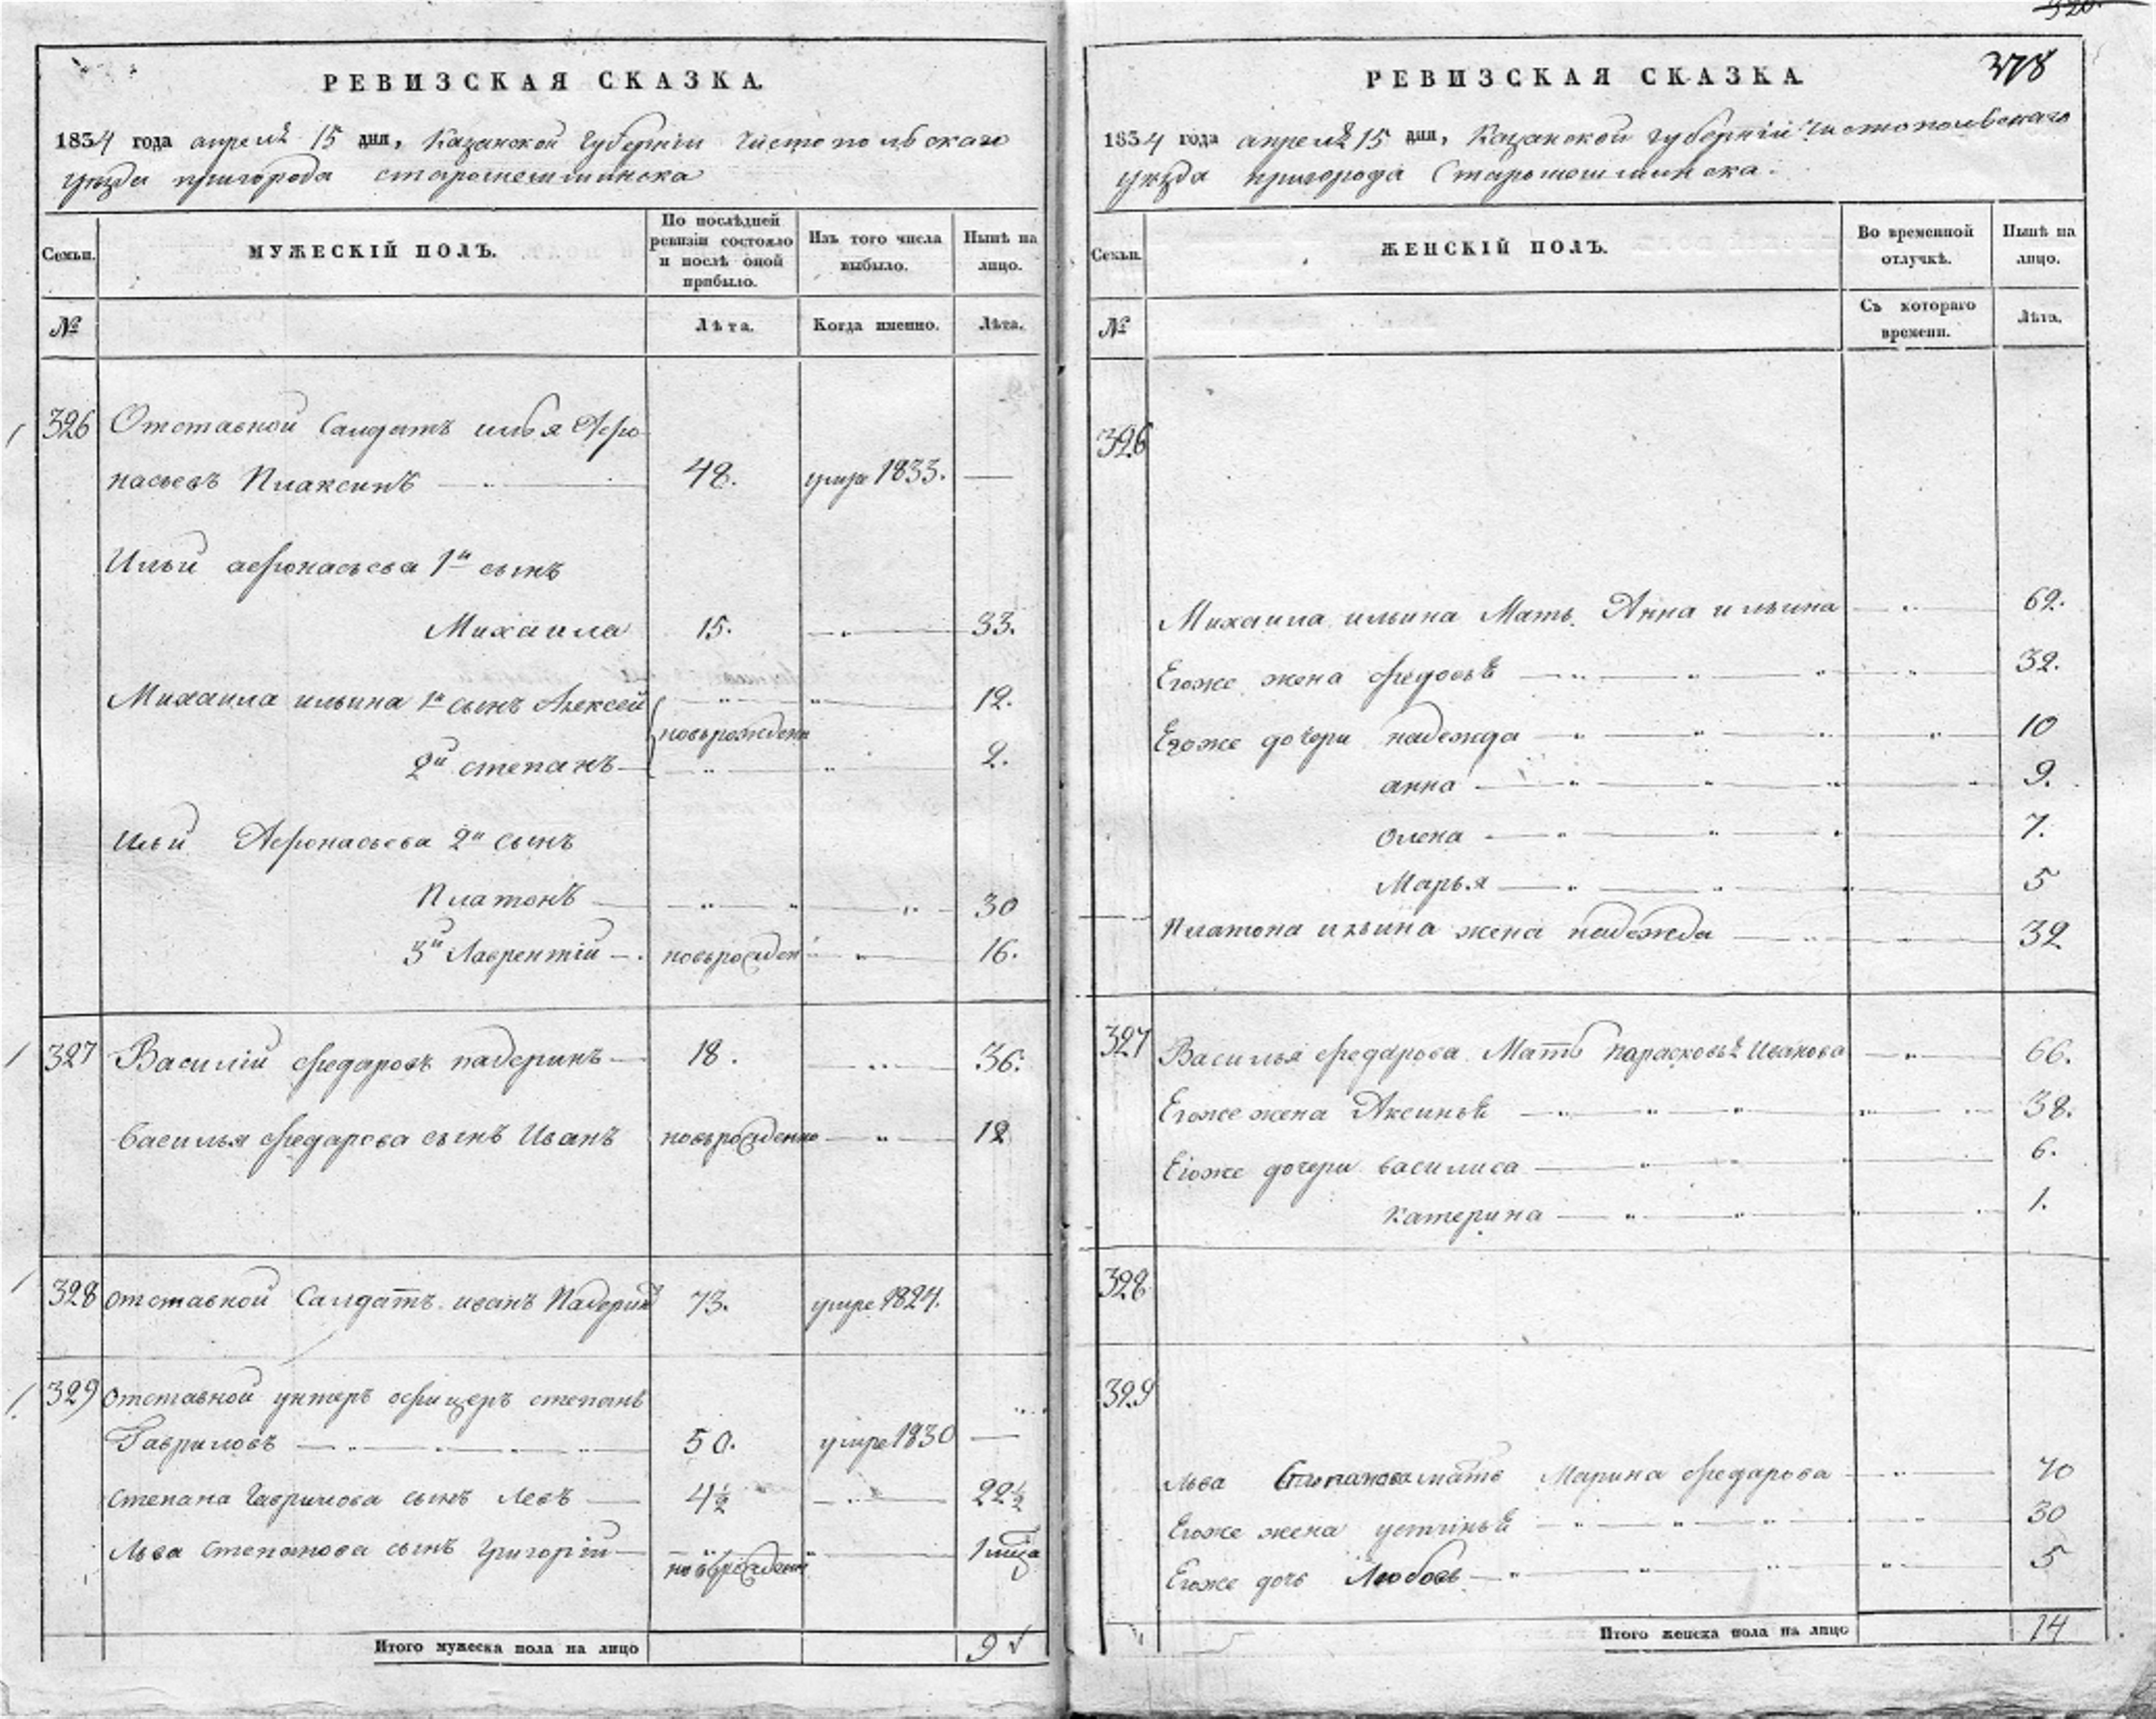 РЕВИЗСКАЯ СКАЗКА.
1834 года апреля 15 дня, Казанской Губернiи Чистопольскаго
уезда пригорода старошешминска
Семьи. МУЖЕСКІЙ ПОЛЪ. По послѣдней ревизіи состояло и послѣ оной прибыло. Изъ того числа выбыло. Нынѣ на лицо.
№ Лѣта. Когда именно. Лѣта.
326 Отставной Салдатъ илья Афо
насьевъ Плаксинъ 48. умре 1833. —
Ильи афонасьева 1й сынъ
Михаила 15. 33.
Михаила ильина 1й сынъ Алексей 12.
новорожденн
2й степанъ 2.
Ильи Афонасьева 2й сынъ
Платонъ 30
3й Лаврентiй новорожден 16.
327 Василiй федаровъ падеринъ 18. 36.
Василья федарова сынъ Иванъ новорожденно 12
328 отставной Салдатъ иванъ Падеринъ 73. умре 1824.
329 отставной унтеръ офицеръ степанъ
Гавриловъ 50. умре 1830 —
Степана Гаврилова сынъ Левъ 4½ 22½
Льва Степанова сынъ Григорiй новорожден 1
Итого мужеска пола на лицо 9
378
РЕВИЗСКАЯ СКАЗКА.
1834 года апреля 15 дня, Казанской губернiи Чистопольскаго
уезда пригорода Старошешминска.
Семьи. ЖЕНСКІЙ ПОЛЪ. Во временной отлучкѣ. Нынѣ на лицо.
№ Съ котораго времени. Лѣта.
326
Михаила ильина Мать Анна ильина 62.
Егоже жена федосья 32.
Егоже дочери надежда 10
анна 9.
Олена 7.
Марья 5
Платона ильина жена надежда 32
327 Василья федарова Мать парасковья Иванова 66.
Егоже жена Аксинья 38.
Егоже дочери василиса 6.
Катерина 1.
328
329
Льва Степанова мать Марина федарова 70
Егоже жена устинья 30
Егоже дочь Любовь 5
Итого женска пола на лицо 14